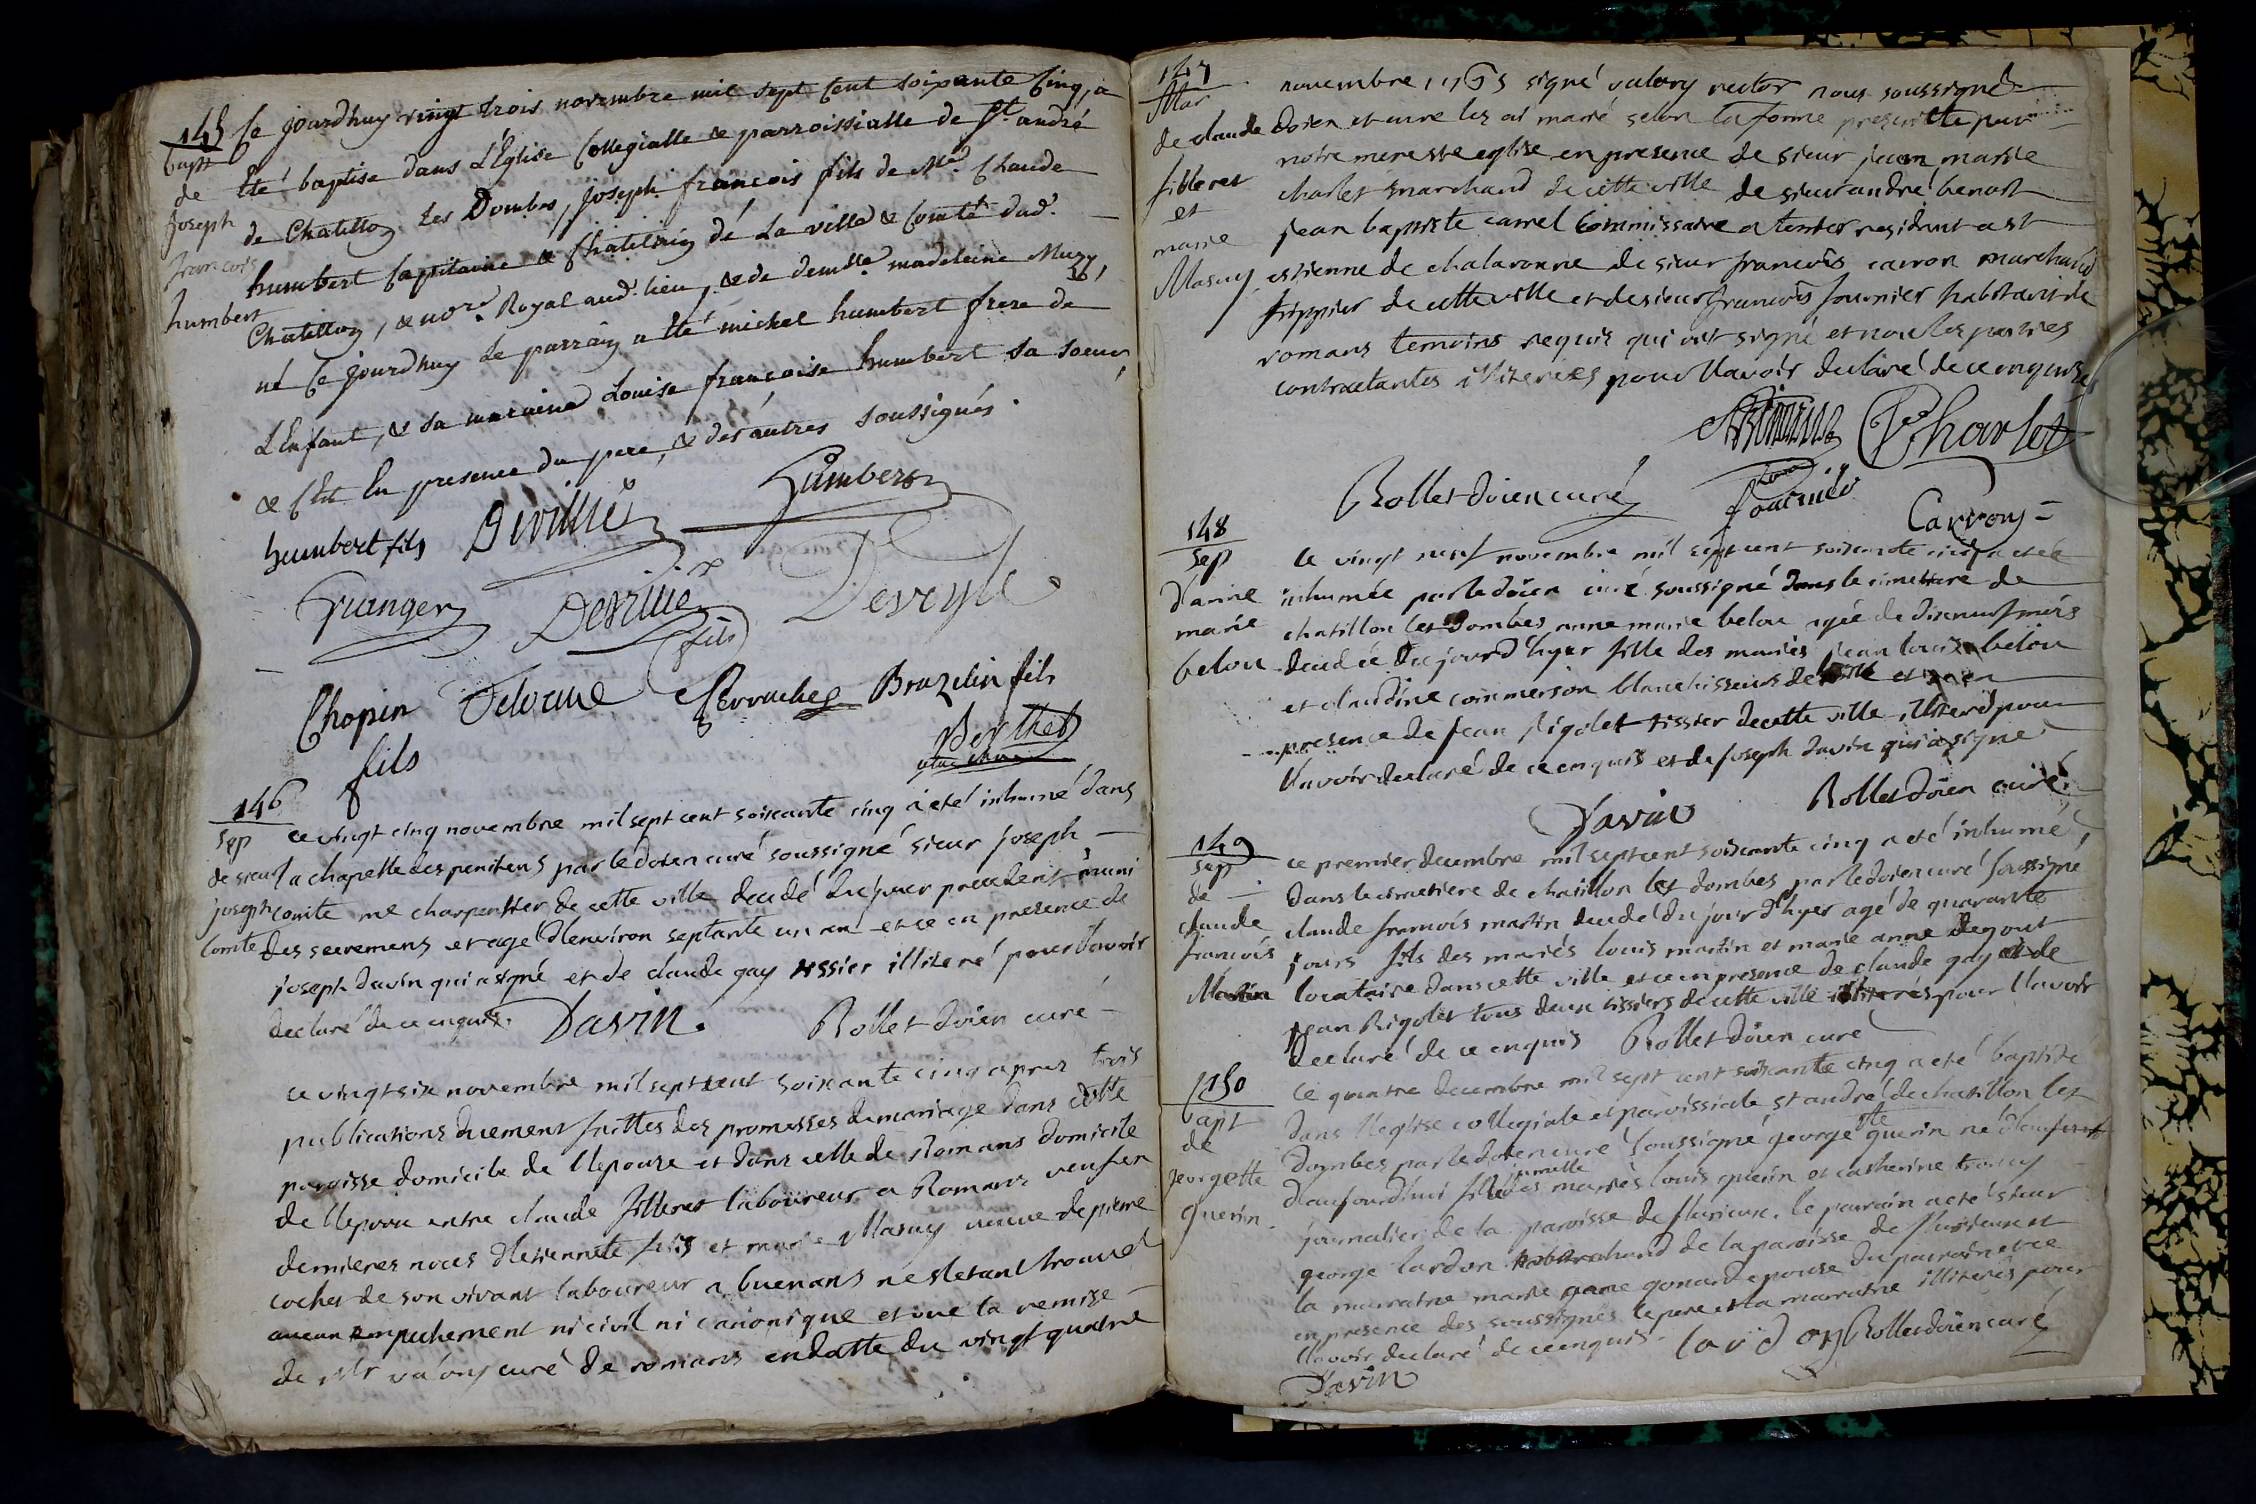 145
bapt
de
Joseph
francois
humbert
Ce jourdhuy vingt trois novembre mil sept Cent soixante Cinq, a
été baptise dans L'Eglise Collegialle & parroissialle de St. andré
de Chatillon Les Dombes, Joseph francois fils de Me. Claude
humbert Capitaine & Chatelain dé La ville & Comté dud.
Chatillon, & nore. Royal aud. lieu, & de demlle. madeleine Muzy,
né Ce jourdhuy Le parrain a été michel humbert frere de
L'Enfant, & sa maraine Louise françoise humbert sa soeur,
& C'est En presence du pere, & des autres soussignés.
humbert fils Deville humbert
Granger Deville fils
Chopin fils Perruches Brazelin fils
Berthet
146
sep
de sieur
joseph
comte
ce vingt cinq novembre mil sept cent soixante cinq a eté inhumé dans
la chapelle des penitens par le doien curé soussigné sieur joseph
comte me charpentier de cette ville decedé du jour precedent muni
des secremens et agé d'environ septante un an et ce en presence de
joseph davin qui a signé et de claude gay tissier illiteré pour l'avoir
declaré de ce enquis. Davin. Rollet doien curé
ce vingt six novembre mil sept cent soixante cinq apres trois
publications duement faittes des promesses de mariage dans cette
paroisse domicile de l'epouse et dans celle de Romans domicile
de l'epoux entre claude filleret laboureur a Romans veuf en
dernieres noces d'etiennette et marie Masuy veuve de pierre
cochet de son vivant laboureur a buenans ne s'etant trouvé
aucun empechement ni civil ni canonique et vue la remise
de Mr valory curé de romans en datte du vingt quatre
147
Mar
de claude
filleret
et
marie
Masuy
novembre 1765 signé valory rector nous soussigné
doien et curé les ai marié selon la forme prescritte par
notre mere ste eglise en presence de sieur jean marie
charlet marchand de cette ville de sieur andré benoit
jean baptiste carrel Commissaire a terrier residant a st
estienne de chalaronne de sieur francois carron marchand
frippier de cette ville et de sieur francois fournier habitant de
romans temoins requis qui ont signé et non les parties
contractantes illiterées pour l'avoir declaré de ce enquises
Charlet
Rollet doien curé fournier
Carron
148
sep
d'anne
marie
belou
le vingt neuf novembre mil sept cent soixante cinq a eté
inhumée par le doien curé soussigné dans le cimetiere de
chatillon les Dombes anne marie belou agée de dix neuf mois
decedée du jour d'hyer fille des mariés jean louis belou
et claudine commerson blanchisseurs de
presence de jean Rigolet tissier de cette ville illiteré pour
l'avoir declaré de ce enquis et de joseph davin qui a signé
Davin Rollet doien curé
149
sep
de
claude
francois
Martin
ce premier decembre mil sept cent soixante cinq a eté inhumé
dans le cimetiere de chatillon les dombes par le doien curé soussigné
claude francois martin decedé du jour d'hyer agé de quarante
jours fils des mariés louis martin et marie anne degout
locataire dans cette ville et ce en presence de claude gay et de
jean Rigolet tous deux tissiers de cette ville illiterés pour l'avoir
declaré de ce enquis Rollet doien curé
150
bapt
de
georgette
guerin
ce quatre decembre mil sept cent soixante cinq a eté baptisé
dans l'eglise collegiale et paroissiale st andré de chatillon les
Dombes par le doien curé soussigné georgette guerin
d'aujourdhui fille jumelle des mariés louis guerin et catherine
journalier de la paroisse de flurieux. le parrain a eté sieur
george lardon marchand de la paroisse de flurieux et
la marraine marie gonard epouse du parrain et ce
en presence des soussignés le pere et la marraine illiterés pour
l'avoir declaré de ce enquis. lardon Rollet doien curé
Davin